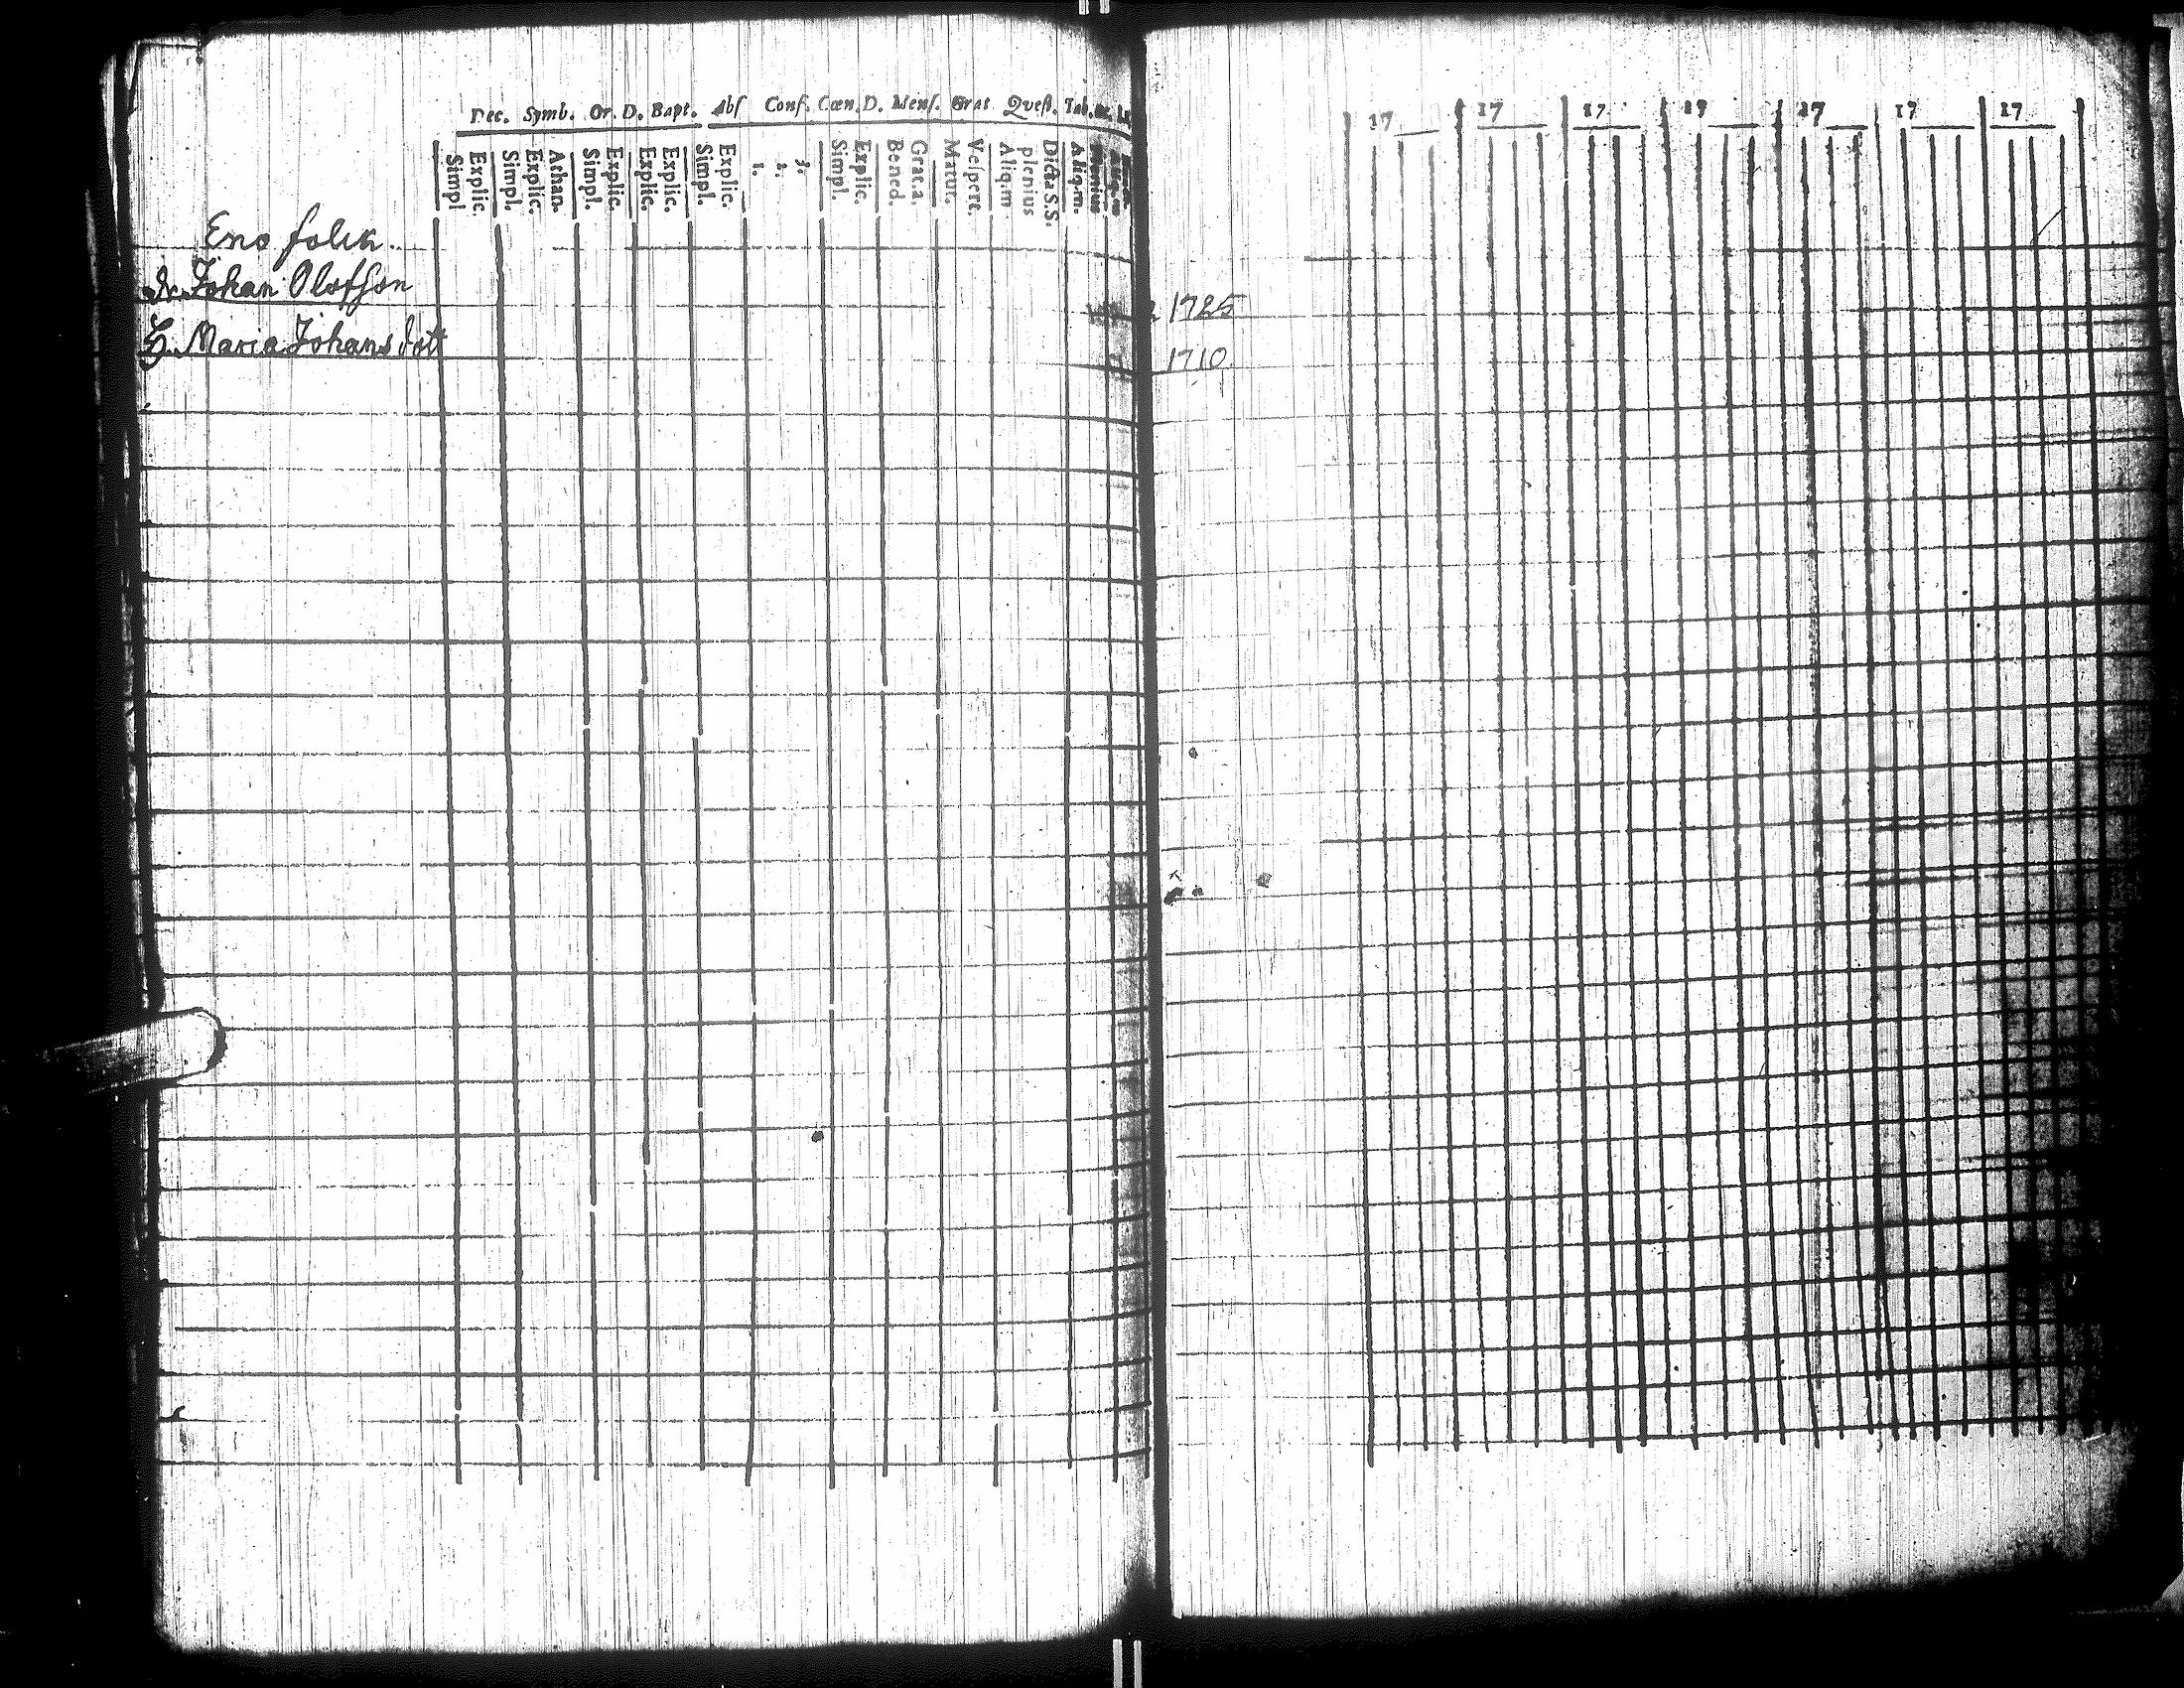 Dec. Symb. Or. D. Bapt. Abs Conf. Cœn. D. Mens. Grat Quest. Tab.
Simpl
Explic.
Simpl.
Explic.
Athan.
Simpl.
Explic.
Explic.
Explic.
Simpl.
Explic.
1.
2.
3.
Simpl.
Explic.
Bened.
Grat.a.
Matut.
Vespert.
Aliq.m
plenius
Dicta S.S.
Aliq.m.
Plenius
Eno folck.
Johan Olofsson
H. Maria Johans dott
17 17 17 17 17 17 17
1725
1710